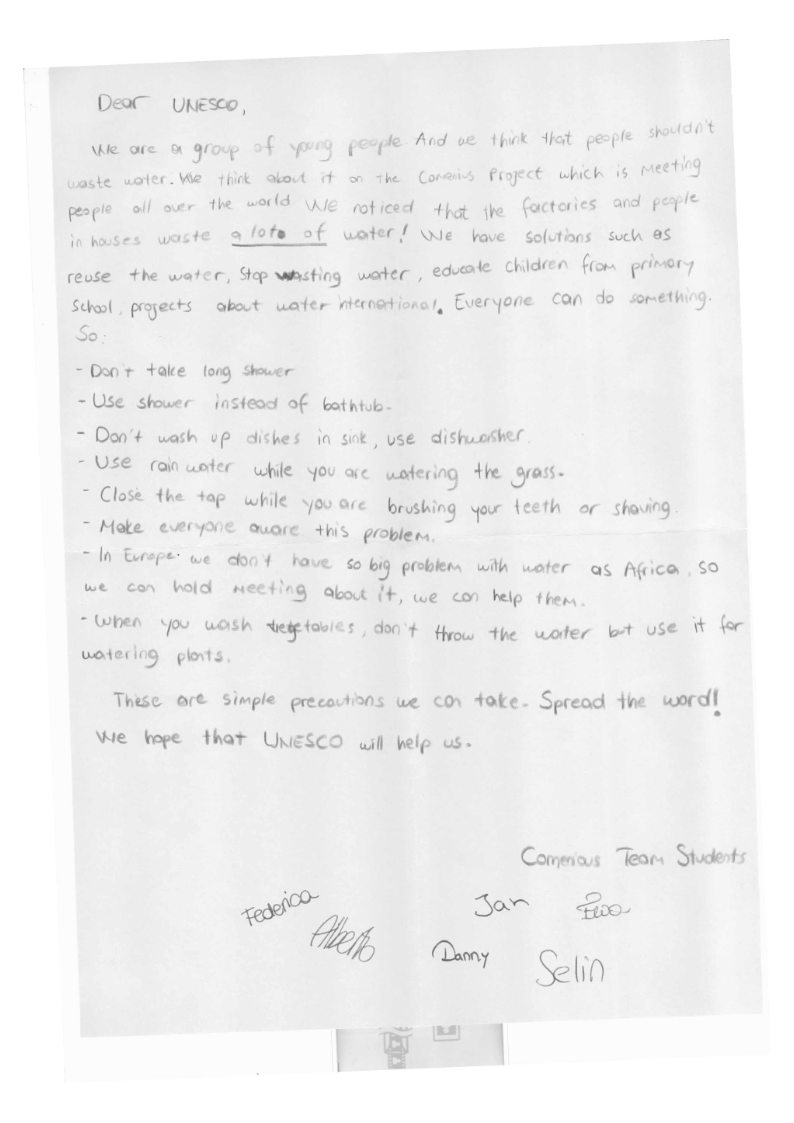 Dear UNESCO,
We are a group of young people And we think that people shouldn't
waste water. We think about it on the Comenius Project which is Meeting
people all over the world We noticed that the factories and people
in houses waste a lots of water! We have solutions such as
reuse the water, Stop wasting water, educate children from primary
School, projects about water international. Everyone can do something.
So:
- Don't take long shower
- Use shower instead of bathtub.
- Don't wash up dishes in sink, use dishwasher.
- Use rain water while you are watering the grass.
- Close the tap while you are brushing your teeth or shaving.
- Make everyone aware this problem.
- In Europe we don't have so big problem with water as Africa, so
we can hold Meeting about it, we can help them.
- When you wash vegetables, don't throw the water but use it for
watering plants.
These are simple precautions we can take. Spread the word!
We hope that UNESCO will help us.
Comenious Team Students
Federica Jan Ewa
Alberto Danny Selin